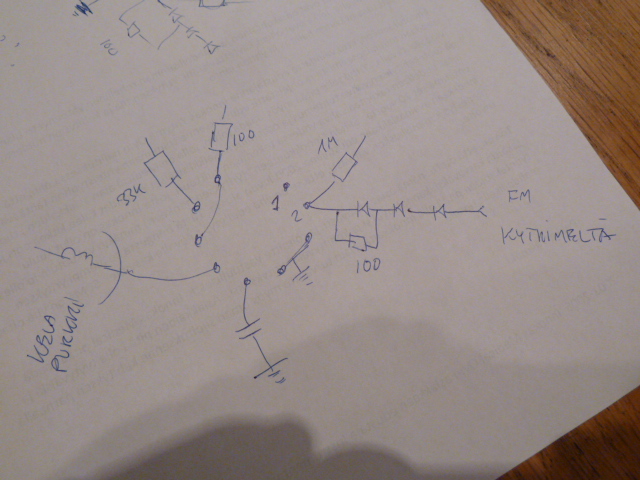 100
100
1M
33K
1
2
FM
KYTKIMELTÄ
100
KELA
PURKKI